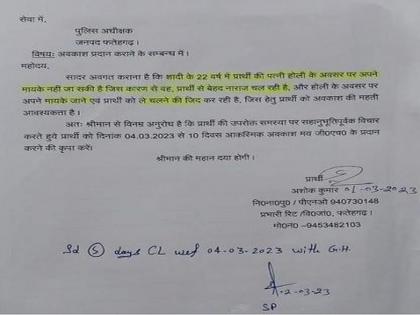 सेवा में,
पुलिस अधीक्षक
जनपद फतेहगढ़।
विषयः अवकाश प्रदान करने के सम्बन्ध में।
महोदय,
सादर अवगत कराना है कि शादी के 22 वर्ष में प्रार्थी की पत्नी होली के अवसर पर अपने
मायके नहीं जा सकी है जिस कारण से वह, प्रार्थी से बेहद नाराज चल रही है, और होली के अवसर पर
अपने मायके जाने एवं प्रार्थी को ले चलने की जिद कर रही है, जिस हेतु प्रार्थी को अवकाश की महती
आवश्यकता है।
अतः श्रीमान से विनम्र अनुरोध है कि प्रार्थी की उपरोक्त समस्या पर सहानुभूतिपूर्वक विचार
करते हुये प्रार्थी को दिनांक 04.03.2023 से 10 दिवस आकस्मिक अवकाश मय जी०एच० के प्रदान
करने की कृपा करें।
श्रीमान की महान दया होगी।
प्रार्थी
अशोक कुमार 01-03-2023
नि०ना०पु० / पीएनओ 940730148
प्रभारी रिट /वि०जां०, फतेहगढ़।
मो०न० -9453482103
Sd 5 days CL wef 04-03-2023 with G.H.
02-03-23
SP